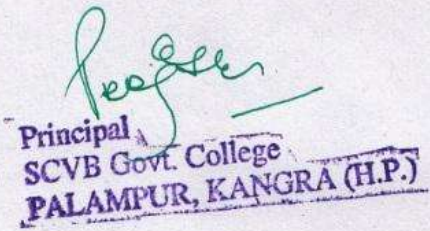 Principal
SCVB Govt. College
PALAMPUR, KANGRA (H.P.)